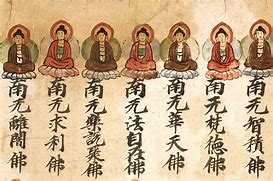 南无智積佛
南无梵德佛
南无華天佛
南无法自在佛
南无樂說聚佛
南无求利佛
南无離闇佛